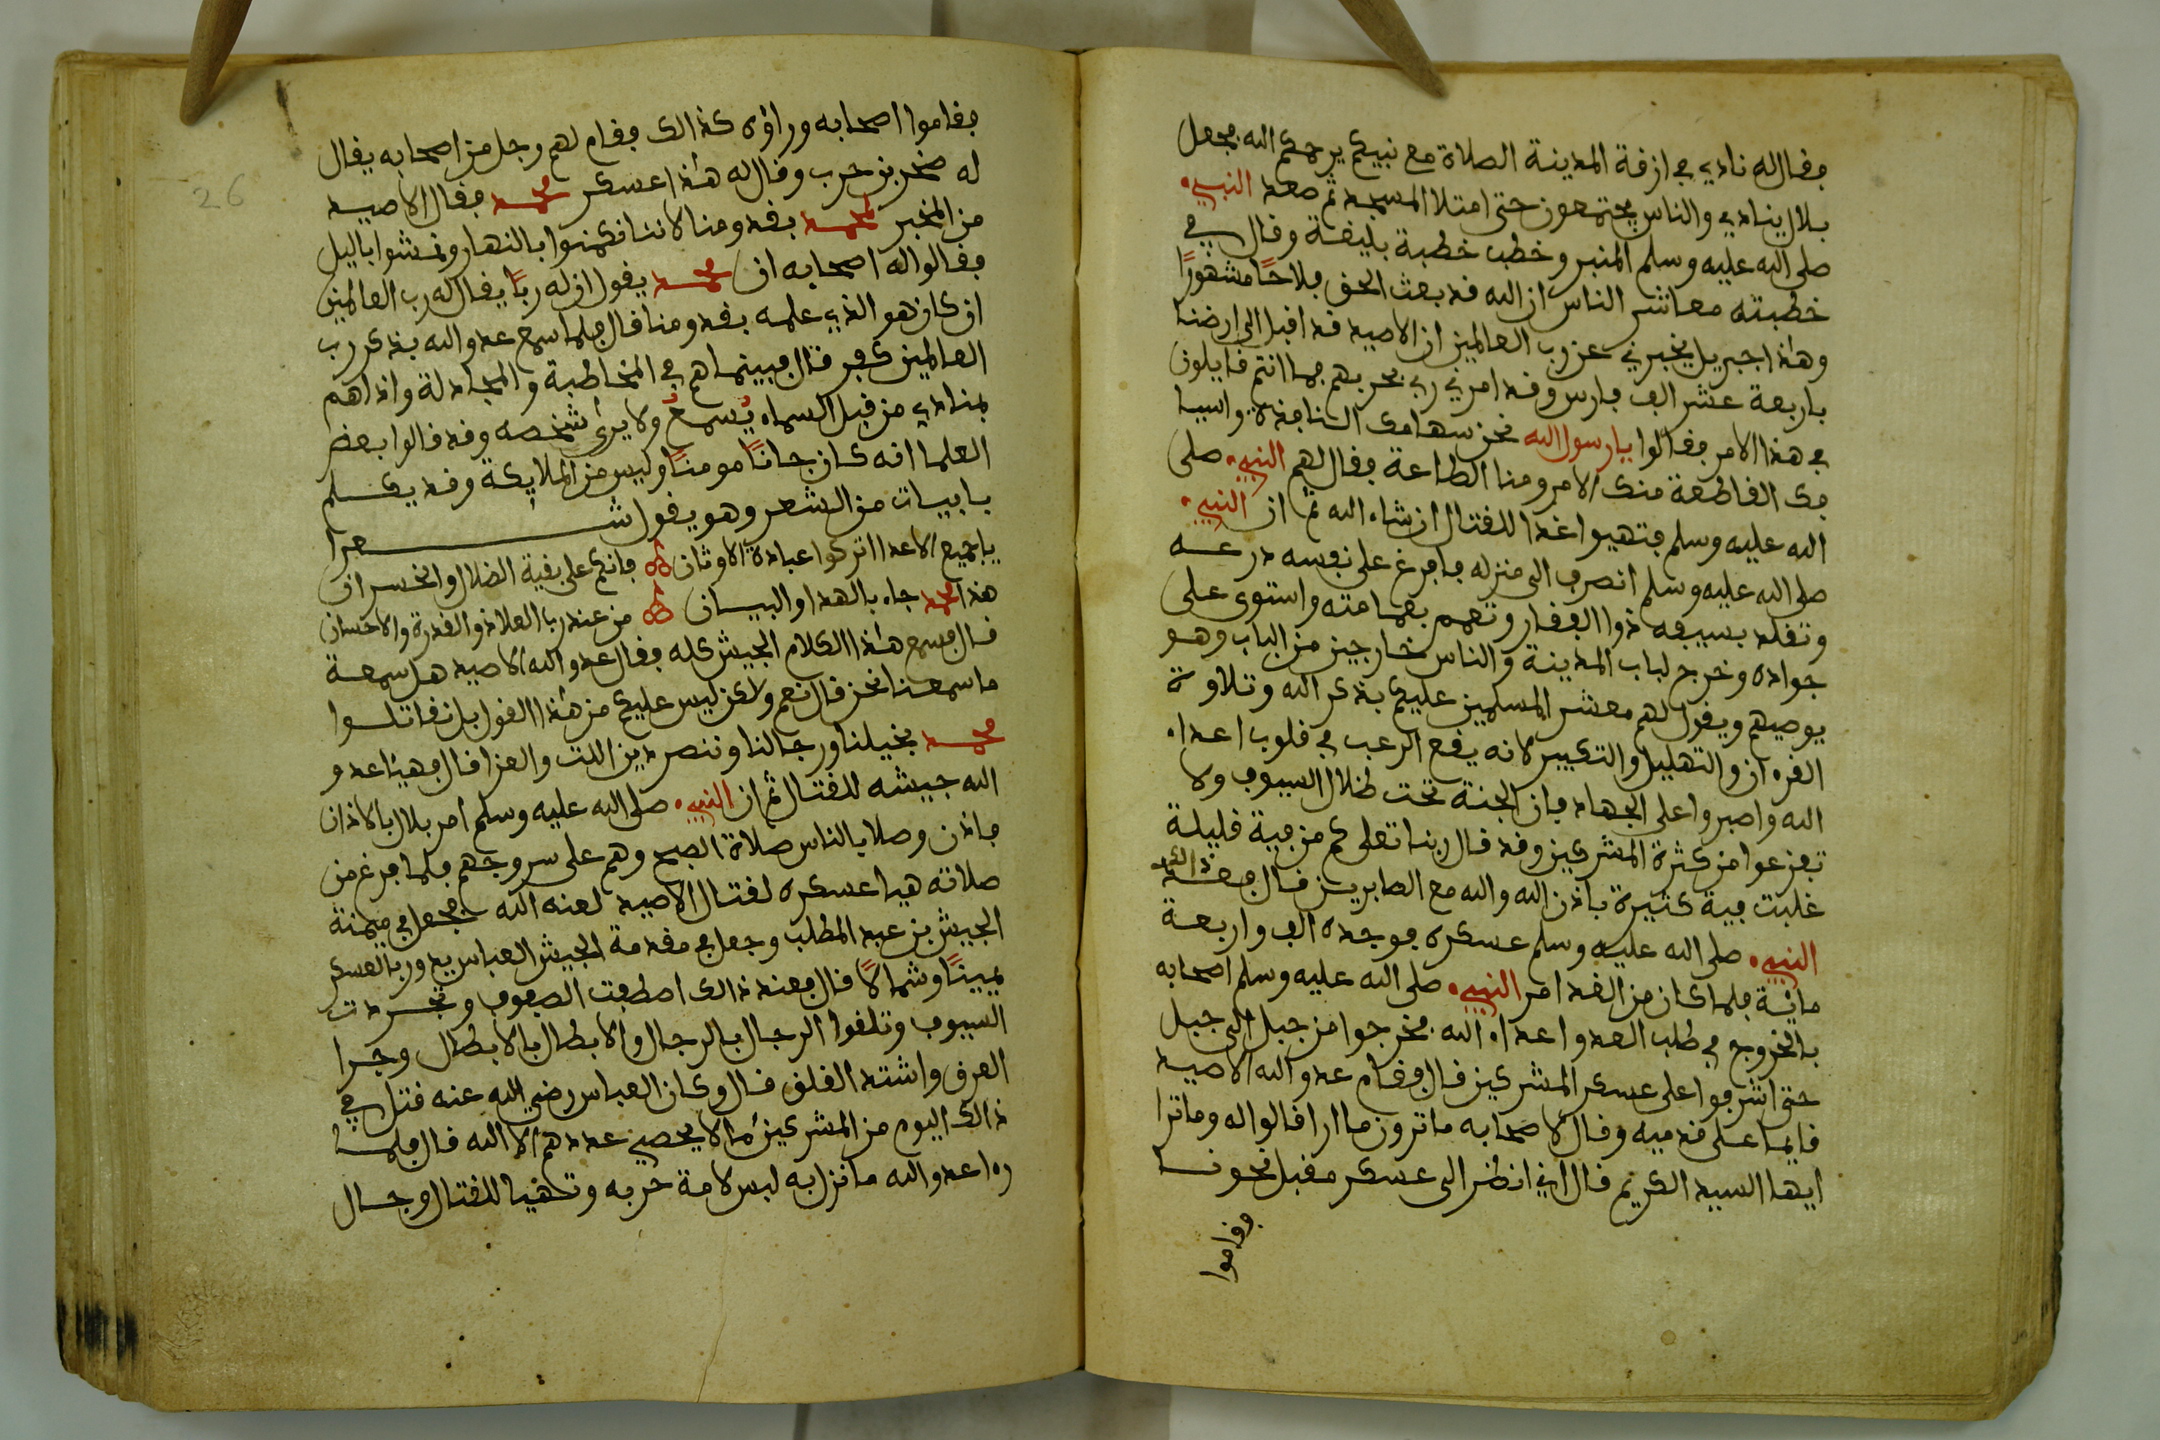 فقال له نادي في ازقة المدينة الصلاة مع نبيكم يرحمكم الله فجعل
بلال ينادي والناس يجتمعون حتى امتلا المسجد ثم صعد النبي
صلى الله عليه وسلم المنبر وخطب خطبة بليغة وقال في
خطبته معاشر الناس ان الله قد بعث الحق فلاحًا مشهورًا
وهذا جبريل يخبرني عن رب العالمين ان الاصيد قد اقبل الى ارضنا
باربعة عشر الف فارس وقد امرني ربي بحربهم فما انتم قايلون
في هذا الامر فقالوا يارسول الله نحن سهامك النافذة واسيا
فك القاطعة منك الامر ومنا الطاعة فقال لهم النبي صلى
الله عليه وسلم فتهيوا غدا للقتال ان شاء الله ثم ان النبي
صلى الله عليه وسلم انصرف الى منزله فافرغ على نفسه درعه
وتقلد بسيفه ذوا الفقار وتعمم بعمامته واستوى على
جواده وخرج لباب المدينة والناس خارجين من الباب وهو
يوصيهم ويقول لهم معشر المسلمين عليكم بذكر الله وتلاوة
القرءان والتهليل والتكبير لانه يقع الرعب في قلوب اعداء
الله واصبروا على الجهاد فان الجنة تحت ظلال السيوف ولا
تفزعوا من كثرة المشركين وقد قال ربنا تعلى كم من فية قليلة
غلبت فية كثيرة باذن الله والله مع الصابرين قال فعند ذالك
النبي صلى الله عليه وسلم عسكره فوجده الف واربعة
ماية فلما كان من الغد امر النبي صلى الله عليه وسلم اصحابه
بالخروج في طلب العدو اعداء الله فخرجوا من جبل الى جبل
حتى اشرفوا على عسكر المشركين قال فقام عدو الله الاصيد
قايما على قدميه وقال لاصحابه ماترون ما ارا قالوا له وماترا
ايها السيد الكريم قال اني انظر الى عسكر مقبل نحونا
فقاموا
26
فقاموا اصحابه وراوه كذالك فقام لهم رجل من اصحابه يقال
له صخر بن حرب وقال له هذا عسكر محمد فقال الاصيد
من المخبر لمحمد بقدومنا لاننا نكمنوا بالنهار ونمشوا باليل
فقالوا له اصحابه ان محمد يقول ان له ربًا يقال له رب العالمين
ان كان هو الذي علمه بقدومنا قال فلما سمع عدو الله بذكر رب
العالمين كفر قال فبينما هم في المخاطبة والمجادلة واذاهم
بمنادي من قبل السماء يُسمعُ ولا يرى شخصه وقد قالوا بعض
العلما انه كان جانًا مومنًا وليس من الملايكة وقد يكلم
بابيات من الشعر وهو يقول شعرا
ياجميع الاعدا اتركوا عبادة الاوثان فانكم على بقية الضلال والخسران
هذا محمد جاء بالهدا والبيان من عند ربا العلا ذو القدرة والاحسان
قال فسمع هذا الكلام الجيش كله فقال عدو الله الاصيد هل سمعة
ماسمعنا نحن قال نعم ولاكن ليس عليكم من هذا القول بل نقاتلوا
محمد بخيلنا ورجالنا وننصر دين اللت والعزا قال فهيا عدو
الله جيشه للقتال ثم ان النبي صلى الله عليه وسلم امر بلال بالاذان
فاذن وصلا بالناس صلاة الصبح وهم على سروجهم فلما فرغ من
صلاته هيا عسكره لقتال الاصيد لعنه الله فجعل في ميمنة
الجيش بن عبد المطلب وجعل في مقدمة الجيش العباس يدور بالعسكر
يمينًا وشمالًا قال فعند ذالك اصطفت الصفوف وتجردت
السيوف وتلقوا الرجال بالرجال والابطال بالابطال وجرا
العرق واشتد القلق قال وكان العباس رضي الله عنه قتل في
ذالك اليوم من المشركين ما لا يحصي عددهم الا الله قال فلما
رءا عدو الله مانزل به لبس لامة حربه وتهيا للقتال وجال